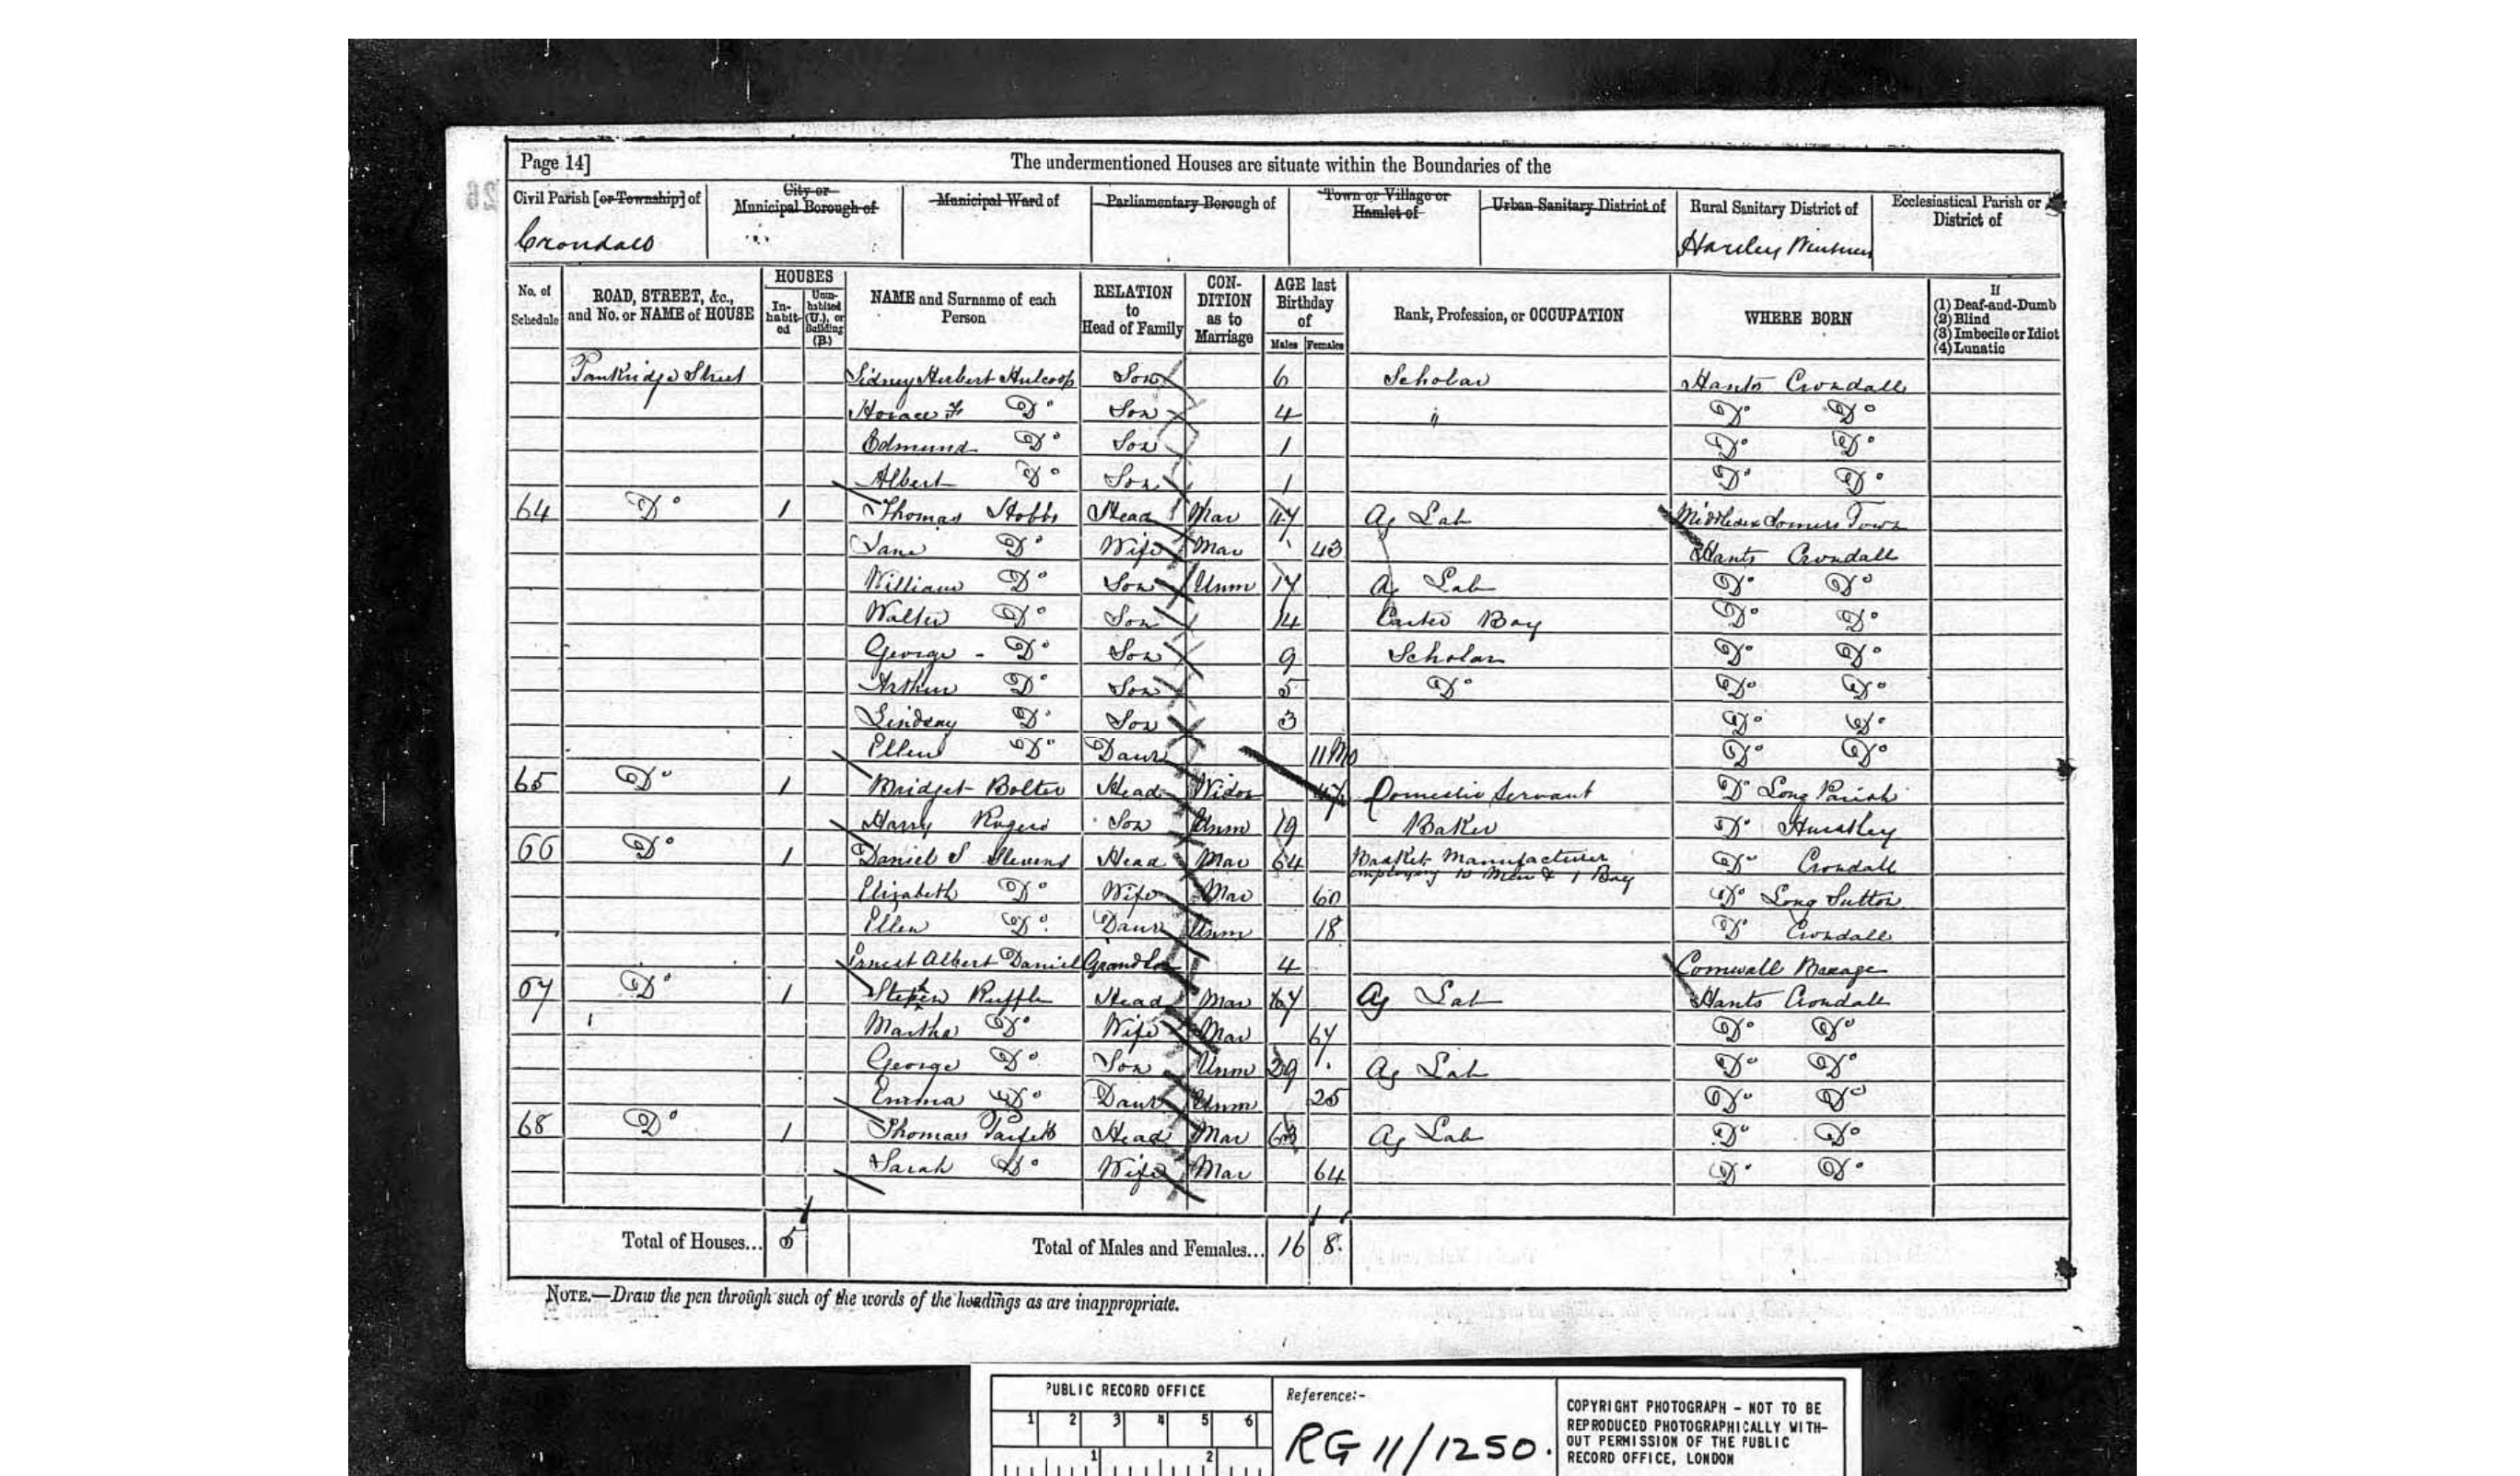 Page 14]
The undermentioned Houses are situate within the Boundaries of the
Civil Parish [or Township] of
City or Municipal Borough of
Municipal Ward of
Parliamentary Borough of
Town or Village or Hamlet of
Urban Sanitary District of
Rural Sanitary District of
Ecclesiastical Parish or District of
Crondall Hartley Wintney
No. of Schedule
ROAD, STREET, &c., and No. or NAME of HOUSE
HOUSES
In-habit-ed
Unin-habited (U.), or Building (B.)
NAME and Surname of each Person
RELATION to Head of Family
CON-DITION as to Marriage
AGE last Birthday of
Males Females
Rank, Profession, or OCCUPATION
WHERE BORN
If
(1) Deaf-and-Dumb
(2) Blind
(3) Imbecile or Idiot
(4) Lunatic
Pankridge Street Sidney Herbert Hulcoop Son 6 Scholar Hants Crondall
Horace F Do Son 4 " Do Do
Edmund Do Son 1 Do Do
Albert Do Son 1 Do Do
64 Do 1 Thomas Hobbs Head Mar 47 Ag Lab Middlesex Somers Town
Jane Do Wife Mar 43 Hants Crondall
William Do Son Unm 17 Ag Lab Do Do
Walter Do Son 14 Carter Boy Do Do
George - Do Son 9 Scholar Do Do
Arthur Do Son 5 Do Do Do
Lindsay Do Son 3 Do Do
Ellen Do Daur 11 Mo Do Do
65 Do 1 Bridget Bolter Head Widow 47 Domestic Servant Do Long Parish
Harry Rogers Son Unm 19 Baker Do Hurstley
66 Do 1 Daniel S Stevens Head Mar 64 Basket Manufacturer employing 10 Men & 1 Boy Do Crondall
Elizabeth Do Wife Mar 60 Do Long Sutton
Ellen Do Daur Unm 18 Do Crondall
Ernest Albert Daniel Grandson 4 Cornwall
67 Do 1 Stephen Ruffle Head Mar 67 Ag Lab Hants Crondall
Martha Do Wife Mar 67 Do Do
George Do Son Unm 29 Ag Lab Do Do
Emma Do Daur Unm 25 Do Do
68 Do 1 Thomas Parfett Head Mar 63 Ag Lab Do Do
Sarah Do Wife Mar 64 Do Do
Total of Houses... 5 Total of Males and Females... 16 8
NOTE.—Draw the pen through such of the words of the headings as are inappropriate.
PUBLIC RECORD OFFICE
1 2 3 4 5 6
1 2
Reference:-
RG 11/1250.
COPYRIGHT PHOTOGRAPH - NOT TO BE
REPRODUCED PHOTOGRAPHICALLY WITH-
OUT PERMISSION OF THE PUBLIC
RECORD OFFICE, LONDON